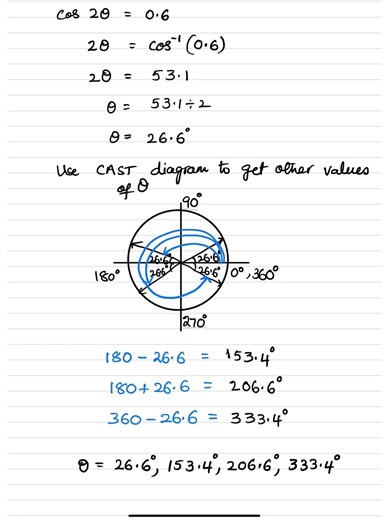 cos 2θ = 0.6
2θ = cos⁻¹(0.6)
2θ = 53.1
θ = 53.1÷2
θ = 26.6°
Use CAST diagram to get other values
of θ
90°
26.6° 26.6°
180° 26.6° 26.6° 0°, 360°
270°
180 - 26.6 = 153.4°
180 + 26.6 = 206.6°
360 - 26.6 = 333.4°
θ = 26.6°, 153.4°, 206.6°, 333.4°